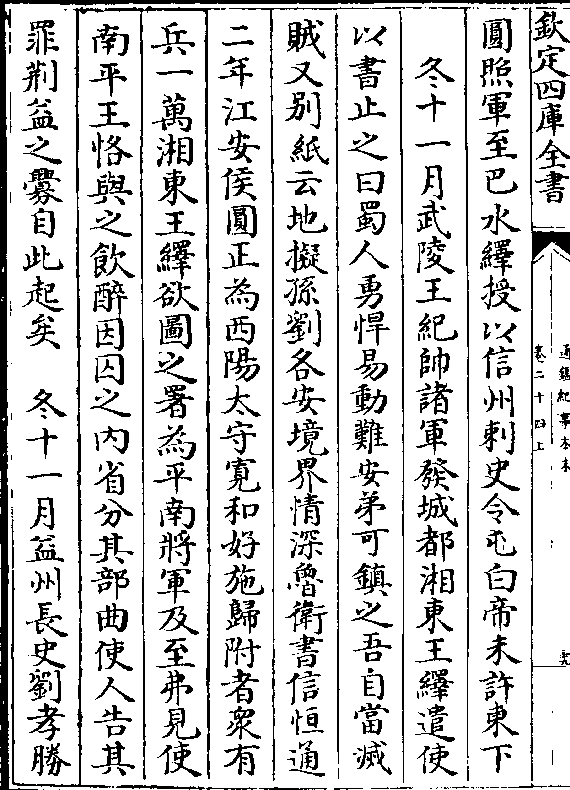 欽定四庫全書
通鑑紀事本末
卷二十四上
圓照軍至巴水繹授以信州刺史令屯白帝未許東下
冬十一月武陵王紀帥諸軍發城都湘東王繹遣使
以書止之曰蜀人勇悍易動難安弟可鎮之吾自當滅
賊又别紙云地擬孫劉各安境界情深魯衛書信恒通
二年江安侯圓正為西陽太守寛和好施歸附者衆有
兵一萬湘東王繹欲圖之署為平南將軍及至弗見使
南平王恪與之飲醉因囚之内省分其部曲使人告其
罪荆益之釁自此起矣　冬十一月益州長史劉孝勝